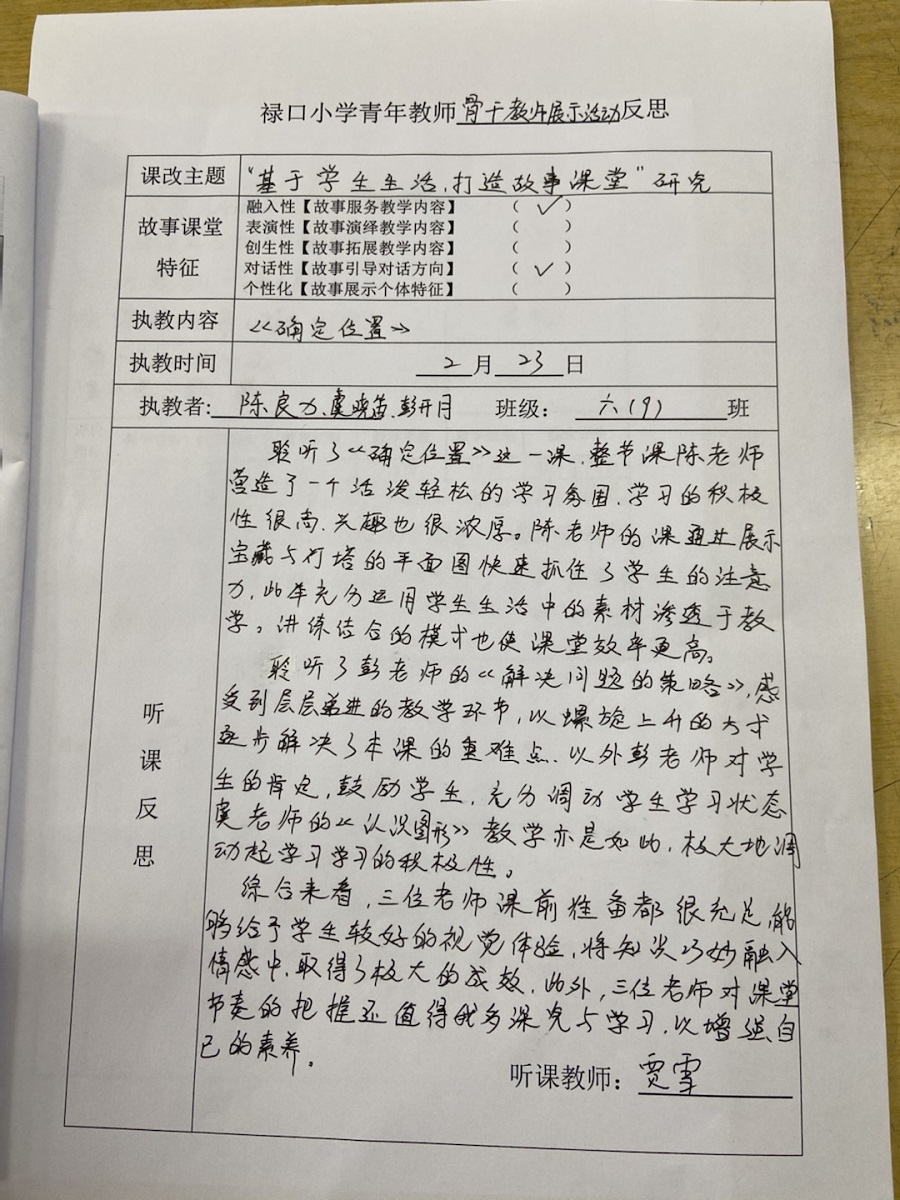 禄口小学青年教师骨干教师展示活动反思
课改主题 “基于学生生活,打造故事课堂”研究
故事课堂特征
融入性【故事服务教学内容】 ( ✓ )
表演性【故事演绎教学内容】 ( )
创生性【故事拓展教学内容】 ( )
对话性【故事引导对话方向】 ( ✓ )
个性化【故事展示个体特征】 ( )
执教内容 《确定位置》
执教时间 2月23日
执教者: 陈良力、虞晓茵、彭开月 班级: 六(9) 班
听课反思
聆听了《确定位置》这一课,整节课陈老师
营造了一个活泼轻松的学习氛围,学习的积极
性很高、兴趣也很浓厚。陈老师的课通过展示
宝藏与灯塔的平面图快速抓住了学生的注意
力,此年充分运用学生生活中的素材渗透于教
学。讲练结合的模式也使课堂效率更高。
聆听了彭老师的《解决问题的策略》,感
受到层层递进的教学环节,以螺旋上升的方式
逐步解决了本课的重难点.以外彭老师对学
生的肯定,鼓励学生,充分调动学生学习状态
虞老师的《认识图形》教学亦是如此,极大地调
动起学习学习的积极性。
综合来看,三位老师课前准备都很充足,能
够给予学生较好的视觉体验,将知识巧妙融入
情感中,取得了极大的成效.此外,三位老师对课堂
节奏的把握还值得我多深究与学习,以增强自
己的素养。
听课教师: 贾雪